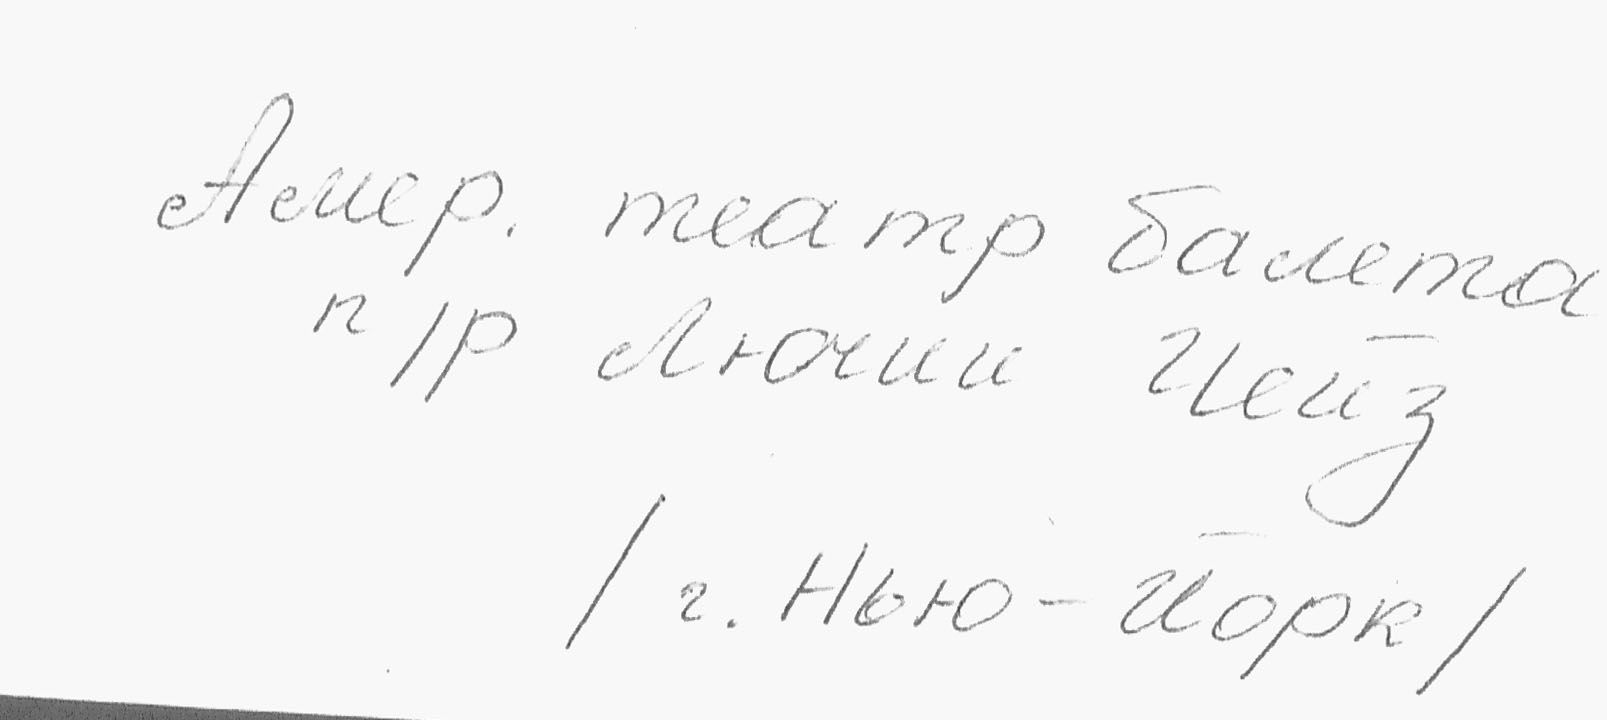 Амер. театр балета
п/р Лючии Чейз
/ г. Нью-Йорк /